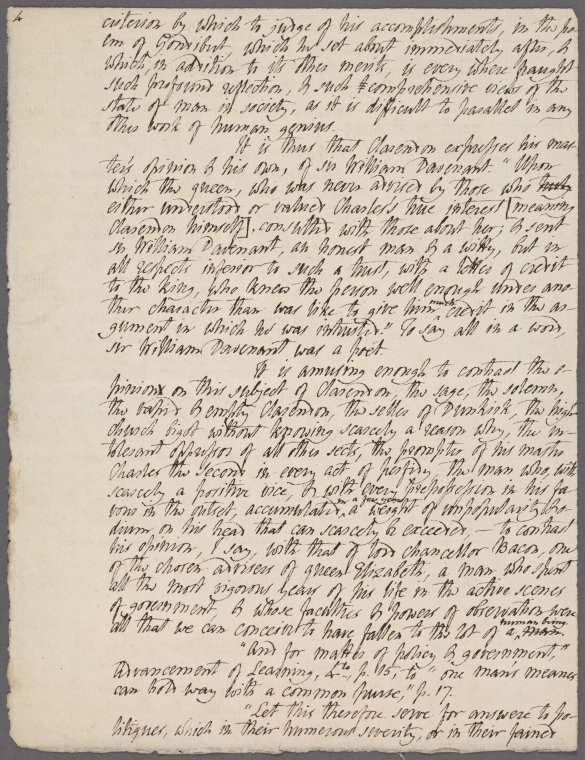 4
criterion by which to judge of his accomplishments, in the po-
em of Gondibert, which he set about immediately after, &
which, in addition to its other merits, is every where fraught
such profound reflection, & such comprehensive views of the
state of man in society, as it is difficult to parallel in any
other work of human genius.
It is thus that Clarendon expresses his mas-
ter's opinion & his own, of sir William Davenant. "Upon
which the queen, who was never advised by those who truly
either understood or valued Charles's true interest [meaning
Clarendon himself], consulted with those about her; & sent
sir William Davenant, an honest man & a witty, but in
all respects inferior to such a trust, with a letter of credit
to the king, who knew the person well enough under ano-
ther character than was like to give him much credit in the ar-
gument in which he was intrusted." To say all in a word,
sir William Davenant was a poet.
It is amusing enough to contrast the o-
pinion on this subject of Clarendon, the sage, the solemn,
the vapid & empty Clarendon, the seller of Dunkirk, the high
church bigot without knowing scarcely a reason why, the in-
tolerant oppressor of all other sects, the prompter of his master
Charles the Second in every act of perfidy, the man who with
scarcely a positive vice, & with every prepossession in his fa-
vour in the outset, accumulated in a few years a weight of unpopularity & o-
dium on his head that can scarcely be exceeded — to contrast
his opinion, I say, with that of lord chancellor Bacon, one
of the chosen advisers of queen Elizabeth, a man who spent
all the most vigorous years of his life in the active scenes
of government, & whose faculties & powers of observation were
all that we can conceive to have fallen to the lot of a man human being.
"And for matter of policy & government,"
Advancement of Learning, 4to, p. 15, to "one man's means
can hold way with a common purse," p. 17.
"Let this therefore serve for answer to po-
litiques, which in their humorous severity, or in their fained